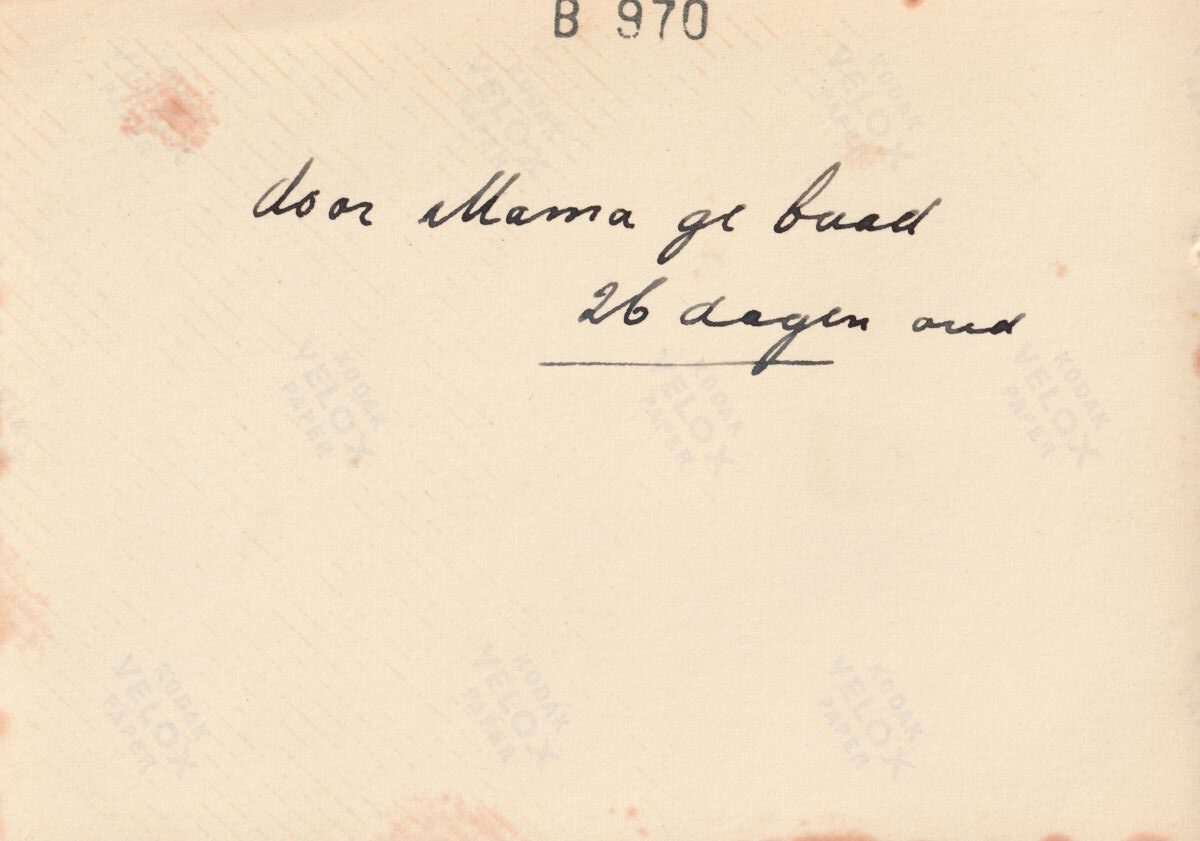 B 970
KODAK VELOX PAPER
KODAK VELOX PAPER
KODAK VELOX PAPER
door Mama ge baad
26 dagen oud
KODAK VELOX PAPER
KODAK VELOX PAPER
KODAK VELOX PAPER
KODAK VELOX PAPER
KODAK VELOX PAPER
KODAK VELOX PAPER